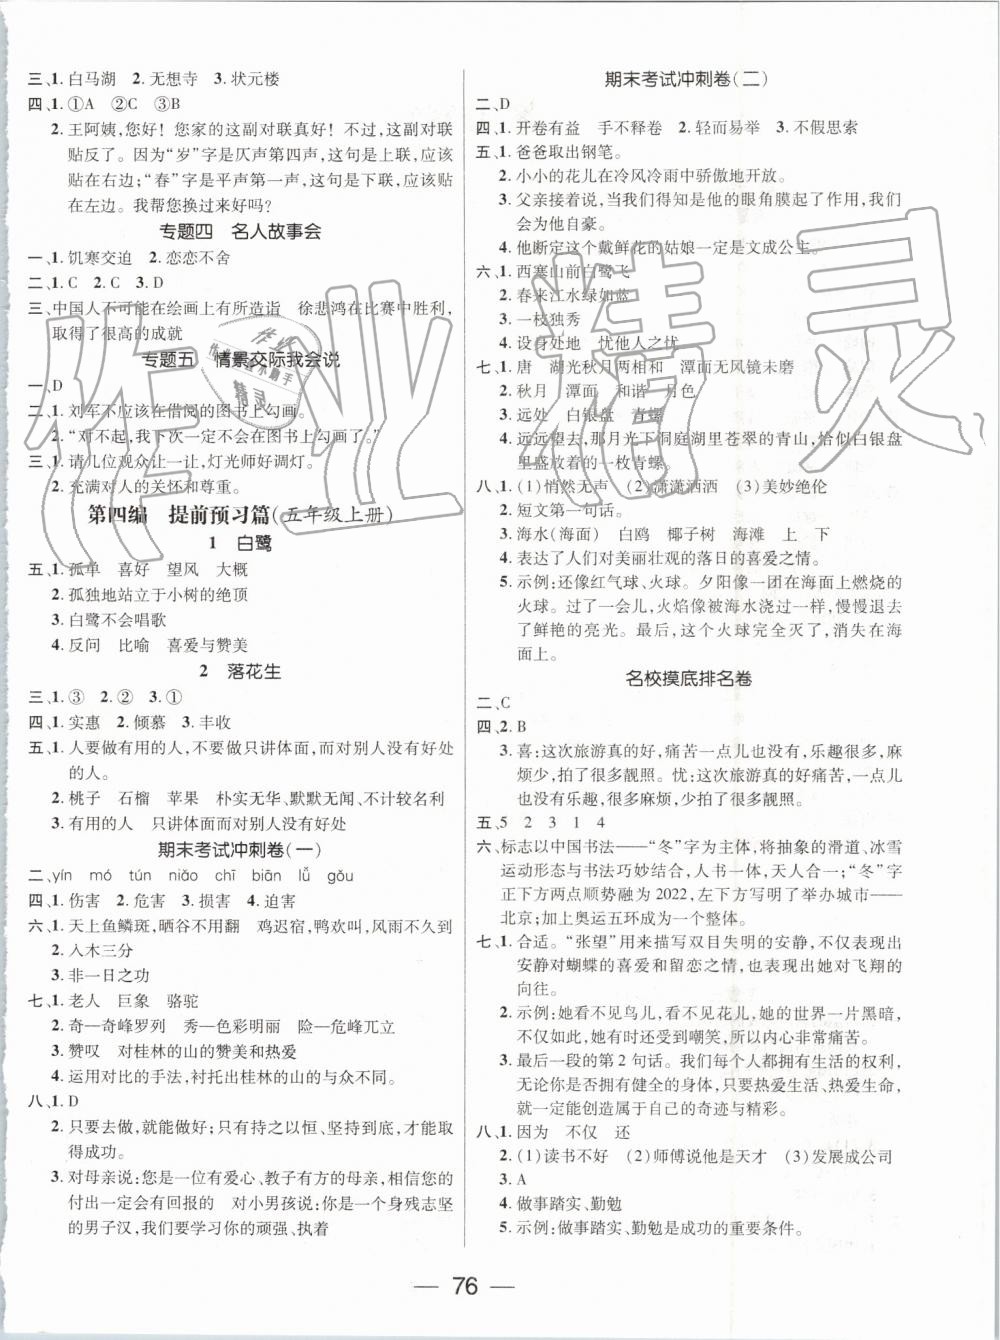 三、1. 白马湖　2. 无想寺　3. 状元楼
四、1. ①A　②C　③B
2. 王阿姨,您好！您家的这副对联真好！不过,这副对联
贴反了。因为“岁”字是仄声第四声,这句是上联,应该
贴在右边；“春”字是平声第一声,这句是下联,应该贴
在左边。我帮您换过来好吗？
专题四　名人故事会
一、1. 饥寒交迫　2. 恋恋不舍
二、1. C　2. C　3. D
三、中国人不可能在绘画上有所造诣　徐悲鸿在比赛中胜利,
取得了很高的成就
专题五　情景交际我会说
一、D
二、1. 刘军不应该在借阅的图书上勾画。
2. “对不起,我下次一定不会在图书上勾画了。”
三、1. 请几位观众让一让,灯光师好调灯。
2. 充满对人的关怀和尊重。
第四编　提前预习篇(五年级上册)
1　白鹭
五、1. 孤单　喜好　望风　大概
2. 孤独地站立于小树的绝顶
3. 白鹭不会唱歌
4. 反问　比喻　喜爱与赞美
2　落花生
三、1. ③　2. ②　3. ①
四、1. 实惠　2. 倾慕　3. 丰收
五、1. 人要做有用的人,不要做只讲体面,而对别人没有好处
的人。
2. 桃子　石榴　苹果　朴实无华、默默无闻、不计较名利
3. 有用的人　只讲体面而对别人没有好处
期末考试冲刺卷(一)
二、yín　mó　tún　niǎo　chī　biān　lǚ　gǒu
四、1. 伤害　2. 危害　3. 损害　4. 迫害
六、1. 天上鱼鳞斑,晒谷不用翻　鸡迟宿,鸭欢叫,风雨不久到
2. 入木三分
3. 非一日之功
七、1. 老人　巨象　骆驼
2. 奇—奇峰罗列　秀—色彩明丽　险—危峰兀立
3. 赞叹　对桂林的山的赞美和热爱
4. 运用对比的手法,衬托出桂林的山的与众不同。
八、1. D
2. 只要去做,就可能成功。只有持之以恒、坚持到底,才能
取得成功。
3. 对母亲说:您是一位有爱心、教子有方的母亲,相信您的
付出一定会有回报的　对小男孩说:你是一个身残志坚
的男子汉,我们要学习你的顽强、执着
期末考试冲刺卷(二)
二、D
四、1. 开卷有益　手不释卷　2. 轻而易举　3. 不假思索
五、1. 爸爸取出钢笔。
2. 小小的花儿在冷风冷雨中骄傲地开放。
3. 父亲接着说,当我们得知他的眼角膜起了作用,我们
会为他自豪。
4. 他断定这个戴鲜花的姑娘一定是文成公主。
六、1. 西塞山前白鹭飞
2. 春来江水绿如蓝
3. 一枝独秀
4. 设身处地　忧他人之忧
七、1. 唐　湖光秋月两相和　潭面无风镜未磨
2. 秋月　潭面　和谐　月色
3. 远处　白银盘　青螺
4. 远远望去,那月光下洞庭湖里苍翠的青山,恰似白银盘
里盛放着的一枚青螺。
八、1. (1)悄然无声　(2)潇潇洒洒　(3)美妙绝伦
2. 短文第一句话。
3. 海水(海面)　白鸥　椰子树　海滩　上　下
4. 表达了人们对美丽壮观的落日的喜爱之情。
5. 示例:还像红气球、火球。夕阳像一团在海面上燃烧的
火球。过了一会儿,火焰像被海水浇过一样,慢慢退去
了鲜艳的亮光。最后,这个火球完全灭了,消失在海
面上。
名校摸底排名卷
二、C
四、2. B
3. 喜:这次旅游真的好,痛苦一点儿也没有,乐趣很多,麻
烦少,拍了很多靓照。忧:这次旅游真的好痛苦,一点儿
也没有乐趣,很多麻烦,少拍了很多靓照。
五、5　2　3　1　4
六、标志以中国书法——“冬”字为主体,将抽象的滑道、冰雪
运动形态与书法巧妙结合,人书一体,天人合一,“冬”字
正下方两点顺势融为2022,左下方写明了举办城市——
北京；加上奥运五环成为一个整体。
七、1. 合适。“张望”用来描写双目失明的安静,不仅表现出
安静对蝴蝶的喜爱和留恋之情,也表现出她对飞翔的
向往。
2. 示例:她看不见鸟儿,看不见花儿,她的世界一片黑暗,
不仅如此,她有时还受到嘲笑,所以内心非常痛苦。
3. 最后一段的第2句话。我们每个人都拥有生活的权利,
无论你是否拥有健全的身体,只要热爱生活、热爱生命,
就一定能创造属于自己的奇迹与精彩。
八、1. 因为　不仅　还
2. (1)读书不好　(2)师傅说他是天才　(3)发展成公司
3. A
4. 做事踏实、勤勉
5. 示例:做事踏实、勤勉是成功的重要条件。
— 76 —
作业精灵